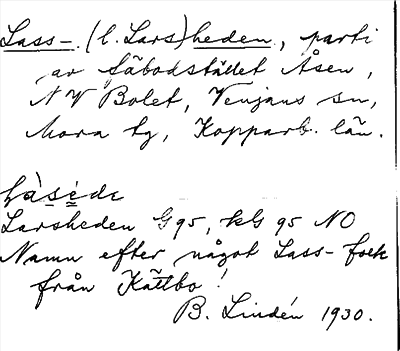 Lass- (l. Lars)heden, parti
av fäbodstället Åsen,
NV Bolet, Venjans sn,
Mora tg, Kopparb. län.
Larsheden G95, kG 95 NO
Namn efter något Lass-folk
från Kättbo!
B. Lindén 1930.